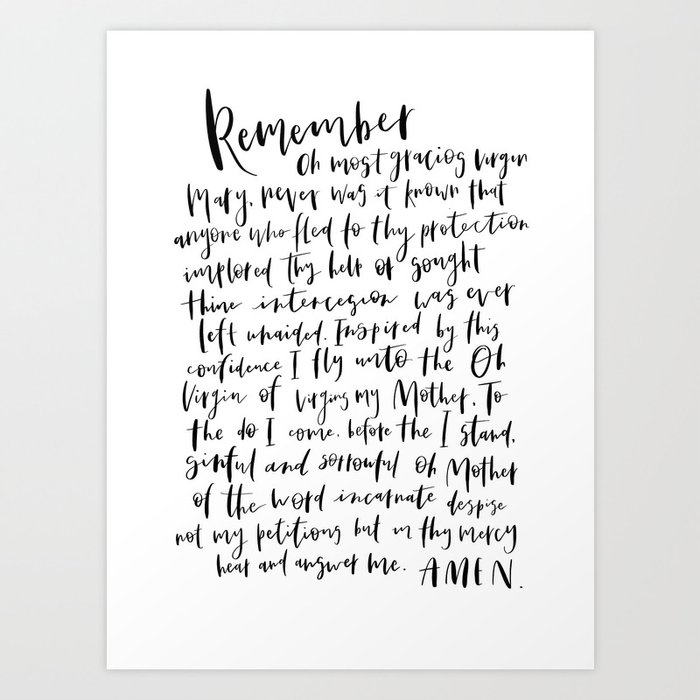 Remember
Oh most gracios Virgin
Mary, never was it known that
anyone who fled to thy protection
implored thy help or sought
thine intercesion was ever
left unaided. Inspired by this
confidence I fly unto the Oh
Virgin of virgins my Mother. To
the do I come. before the I stand,
sinful and sorrouful Oh Mother
of the word incarnate despise
not my petitions but in thy mercy
hear and answer me. AMEN.